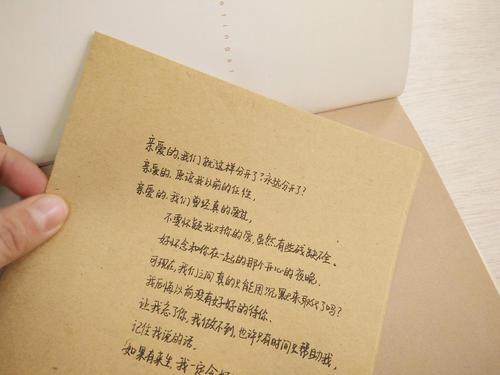 otingbi
亲爱的,我们就这样分开了?永远分开了?
亲爱的,原谅我以前的任性,
亲爱的,我们曾经真的爱过,
不要怀疑我对你的爱,虽然有些残缺不全.
好怀念和你在一起的那个开心的夜晚,
可现在,我们之间真的只能用沉默来取代了吗?
我后悔以前没有好好的待你、
让我忘了你,我做不到,也许只有时间又帮助我,
记住我说的话.
如果有来生,我一定会好